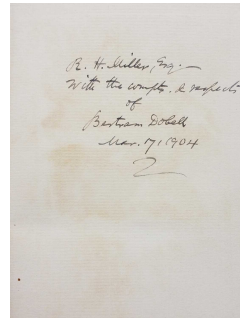 R. H. Miller, Esq:—
With the compts. & respects
of
Bertram Dobell
Mar. 17, 1904